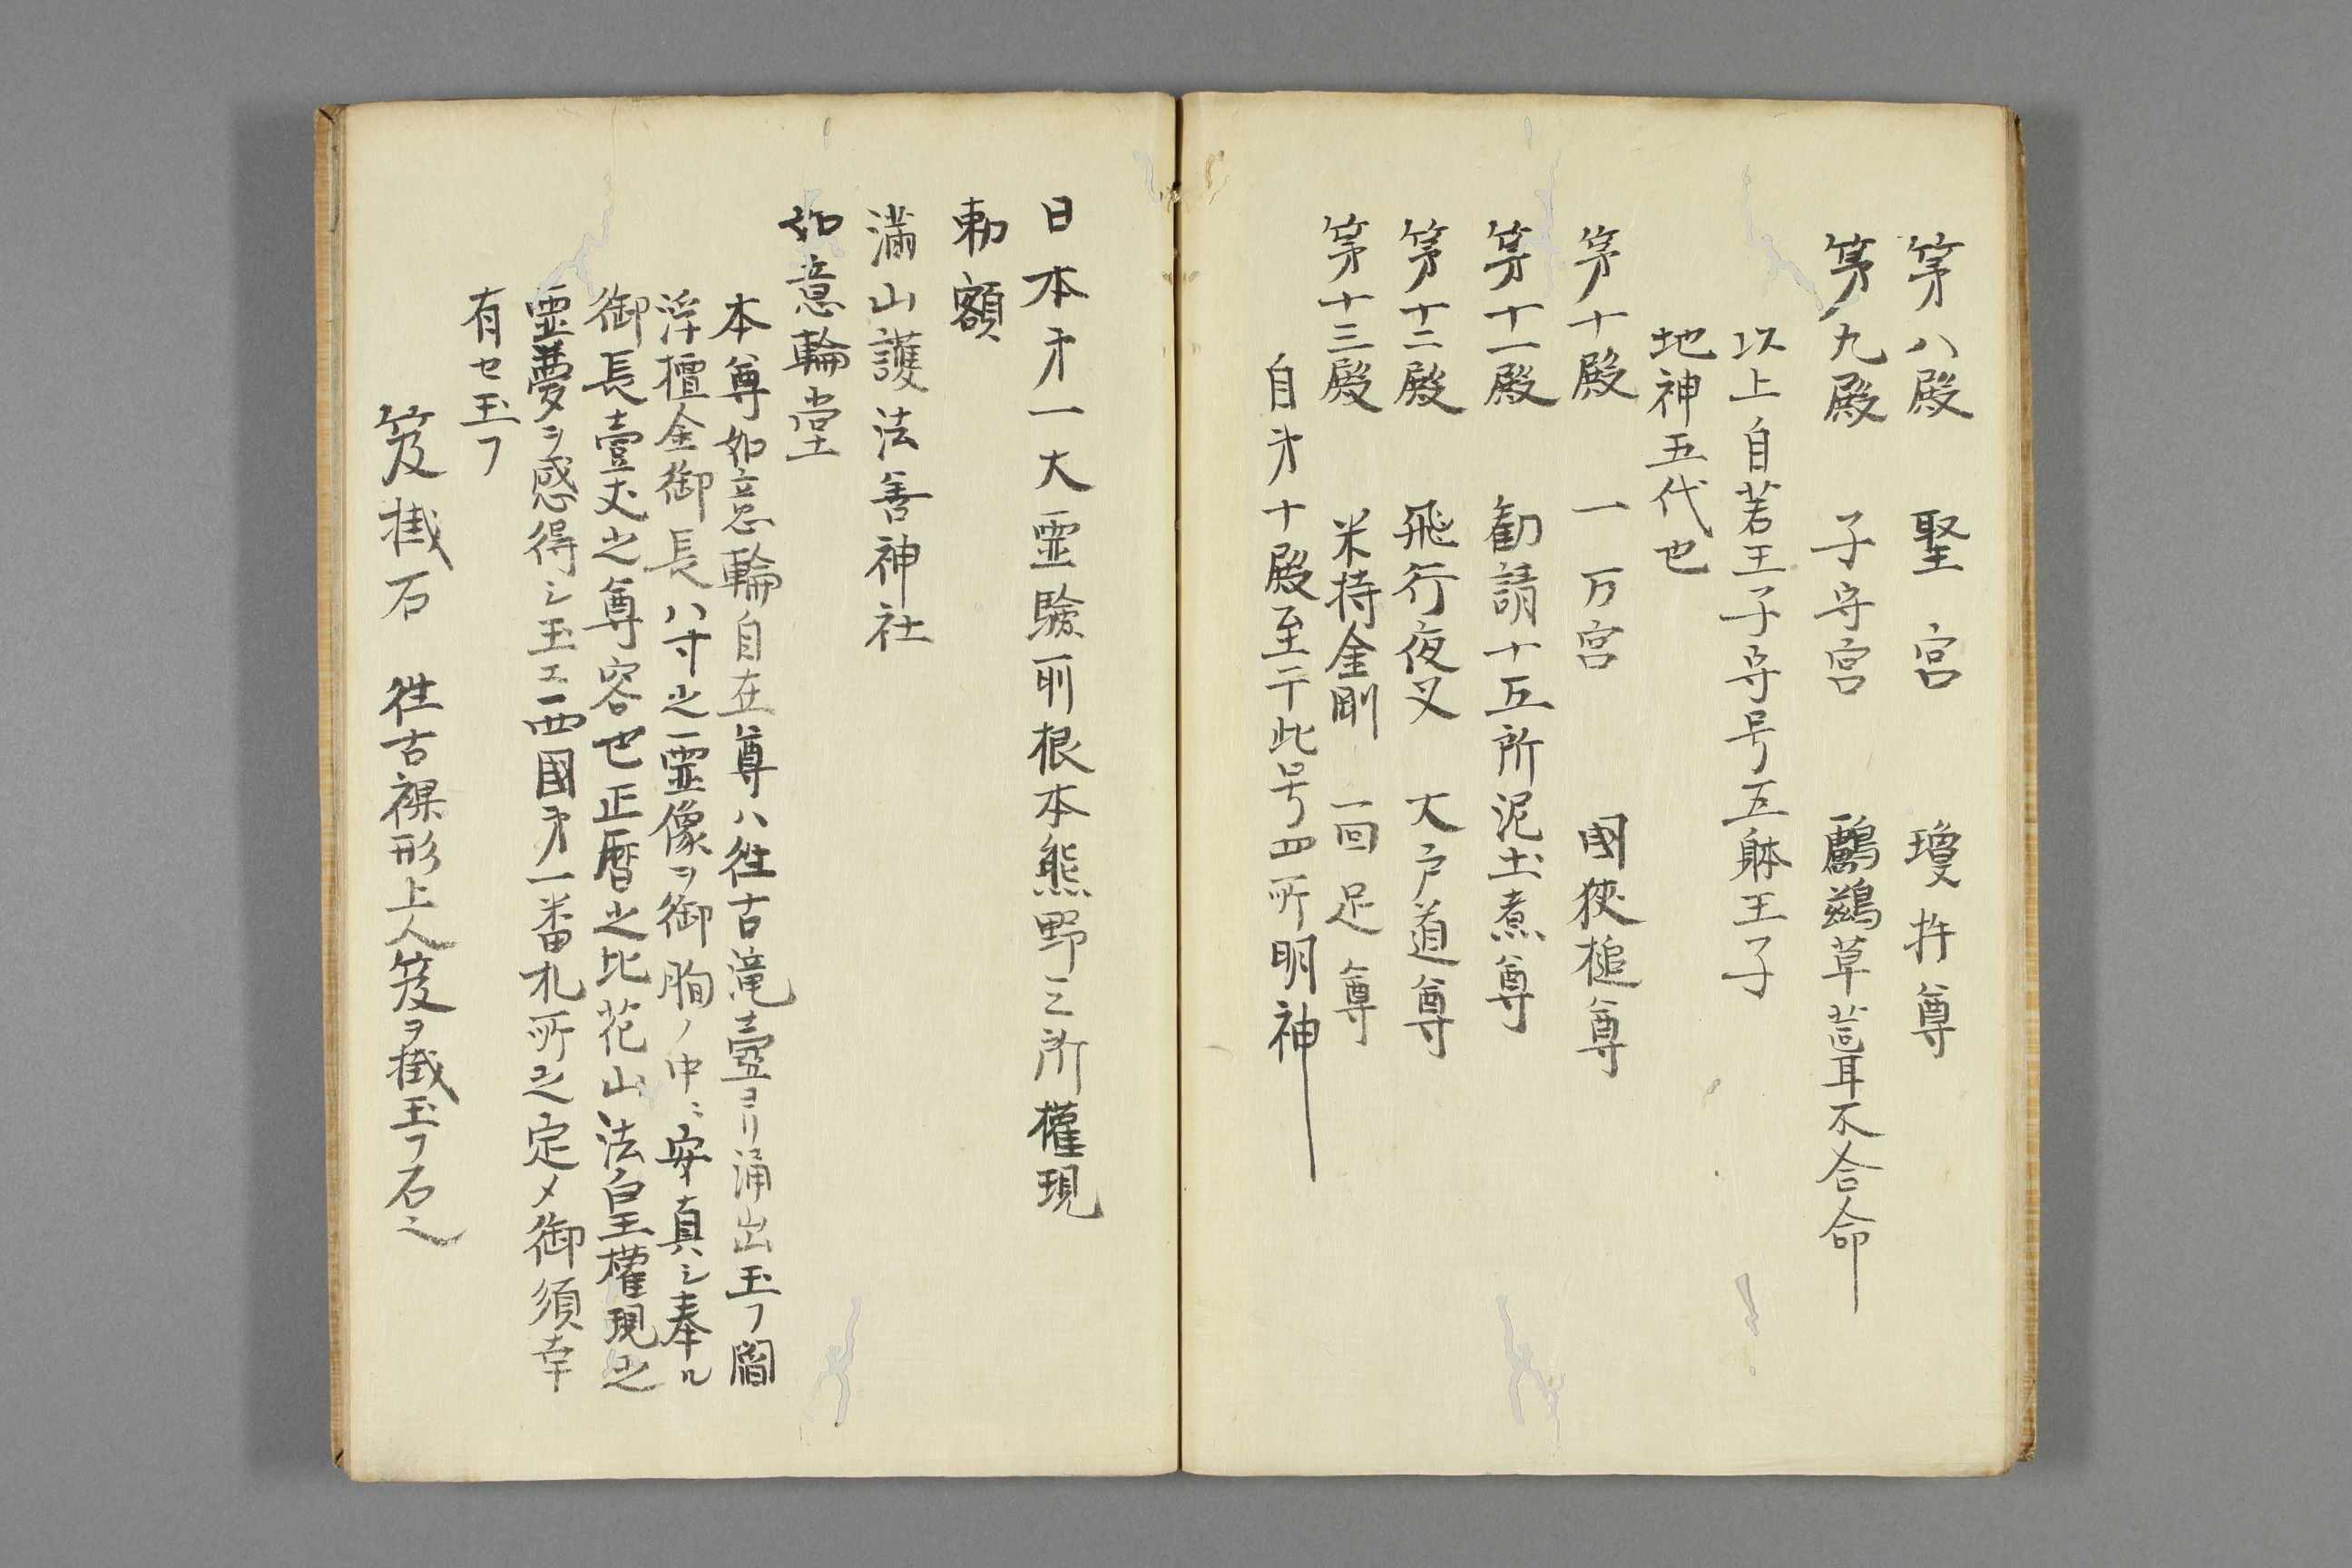 第八殿 聖宮 瓊杵尊
第九殿 子守宮 鸕鷀草葺耳不合命
以上自若王子守号五躰王子
地神五代也
第十殿 一万宮 國狹槌尊
第十一殿 勧請十五所 泥土煮尊
第十二殿 飛行夜叉 大戸道尊
第十三殿 米持金剛 面足尊
自第十殿至于此号四所明神
日本第一大霊驗所根本熊野三所權現
勅額
滿山護法善神社
如意輪堂
本尊如意輪自在尊ハ往古滝壷ヨリ涌出玉フ閻
浮檀金御長八寸之霊像ヲ御胸ノ中ニ安真シ奉ル
御長壹丈之尊容也正暦之比花山法皇權現之
霊夢ヲ感得シ玉エ西國第一番札所之定メ御須幸
有セ玉フ
笈掛石 往古裸形上人笈ヲ掛玉フ石也